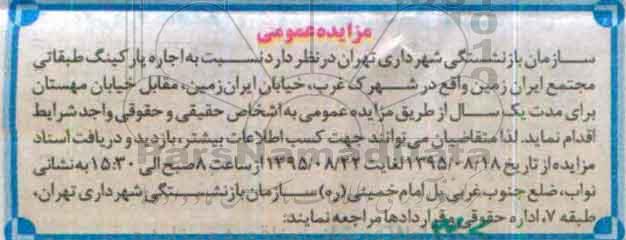 مزایده عمومی
سازمان بازنشستگی شهرداری تهران در نظر دارد نسبت به اجاره پارکینگ طبقاتی
مجتمع ایران زمین واقع در شهرک غرب، خیابان ایران زمین، مقابل خیابان مهستان
برای مدت یک سال از طریق مزایده عمومی به اشخاص حقیقی و حقوقی واجد شرایط
اقدام نماید. لذا متقاضیان می‌توانند جهت کسب اطلاعات بیشتر، بازدید و دریافت اسناد
مزایده از تاریخ ۱۳۹۵/۰۸/۱۸ لغایت ۱۳۹۵/۰۸/۲۲ از ساعت ۸ صبح الی ۱۵:۳۰ به نشانی
نواب، ضلع جنوب غربی پل امام خمینی (ره) سازمان بازنشستگی شهرداری تهران،
طبقه ۷، اداره حقوقی و قراردادها مراجعه نمایند: